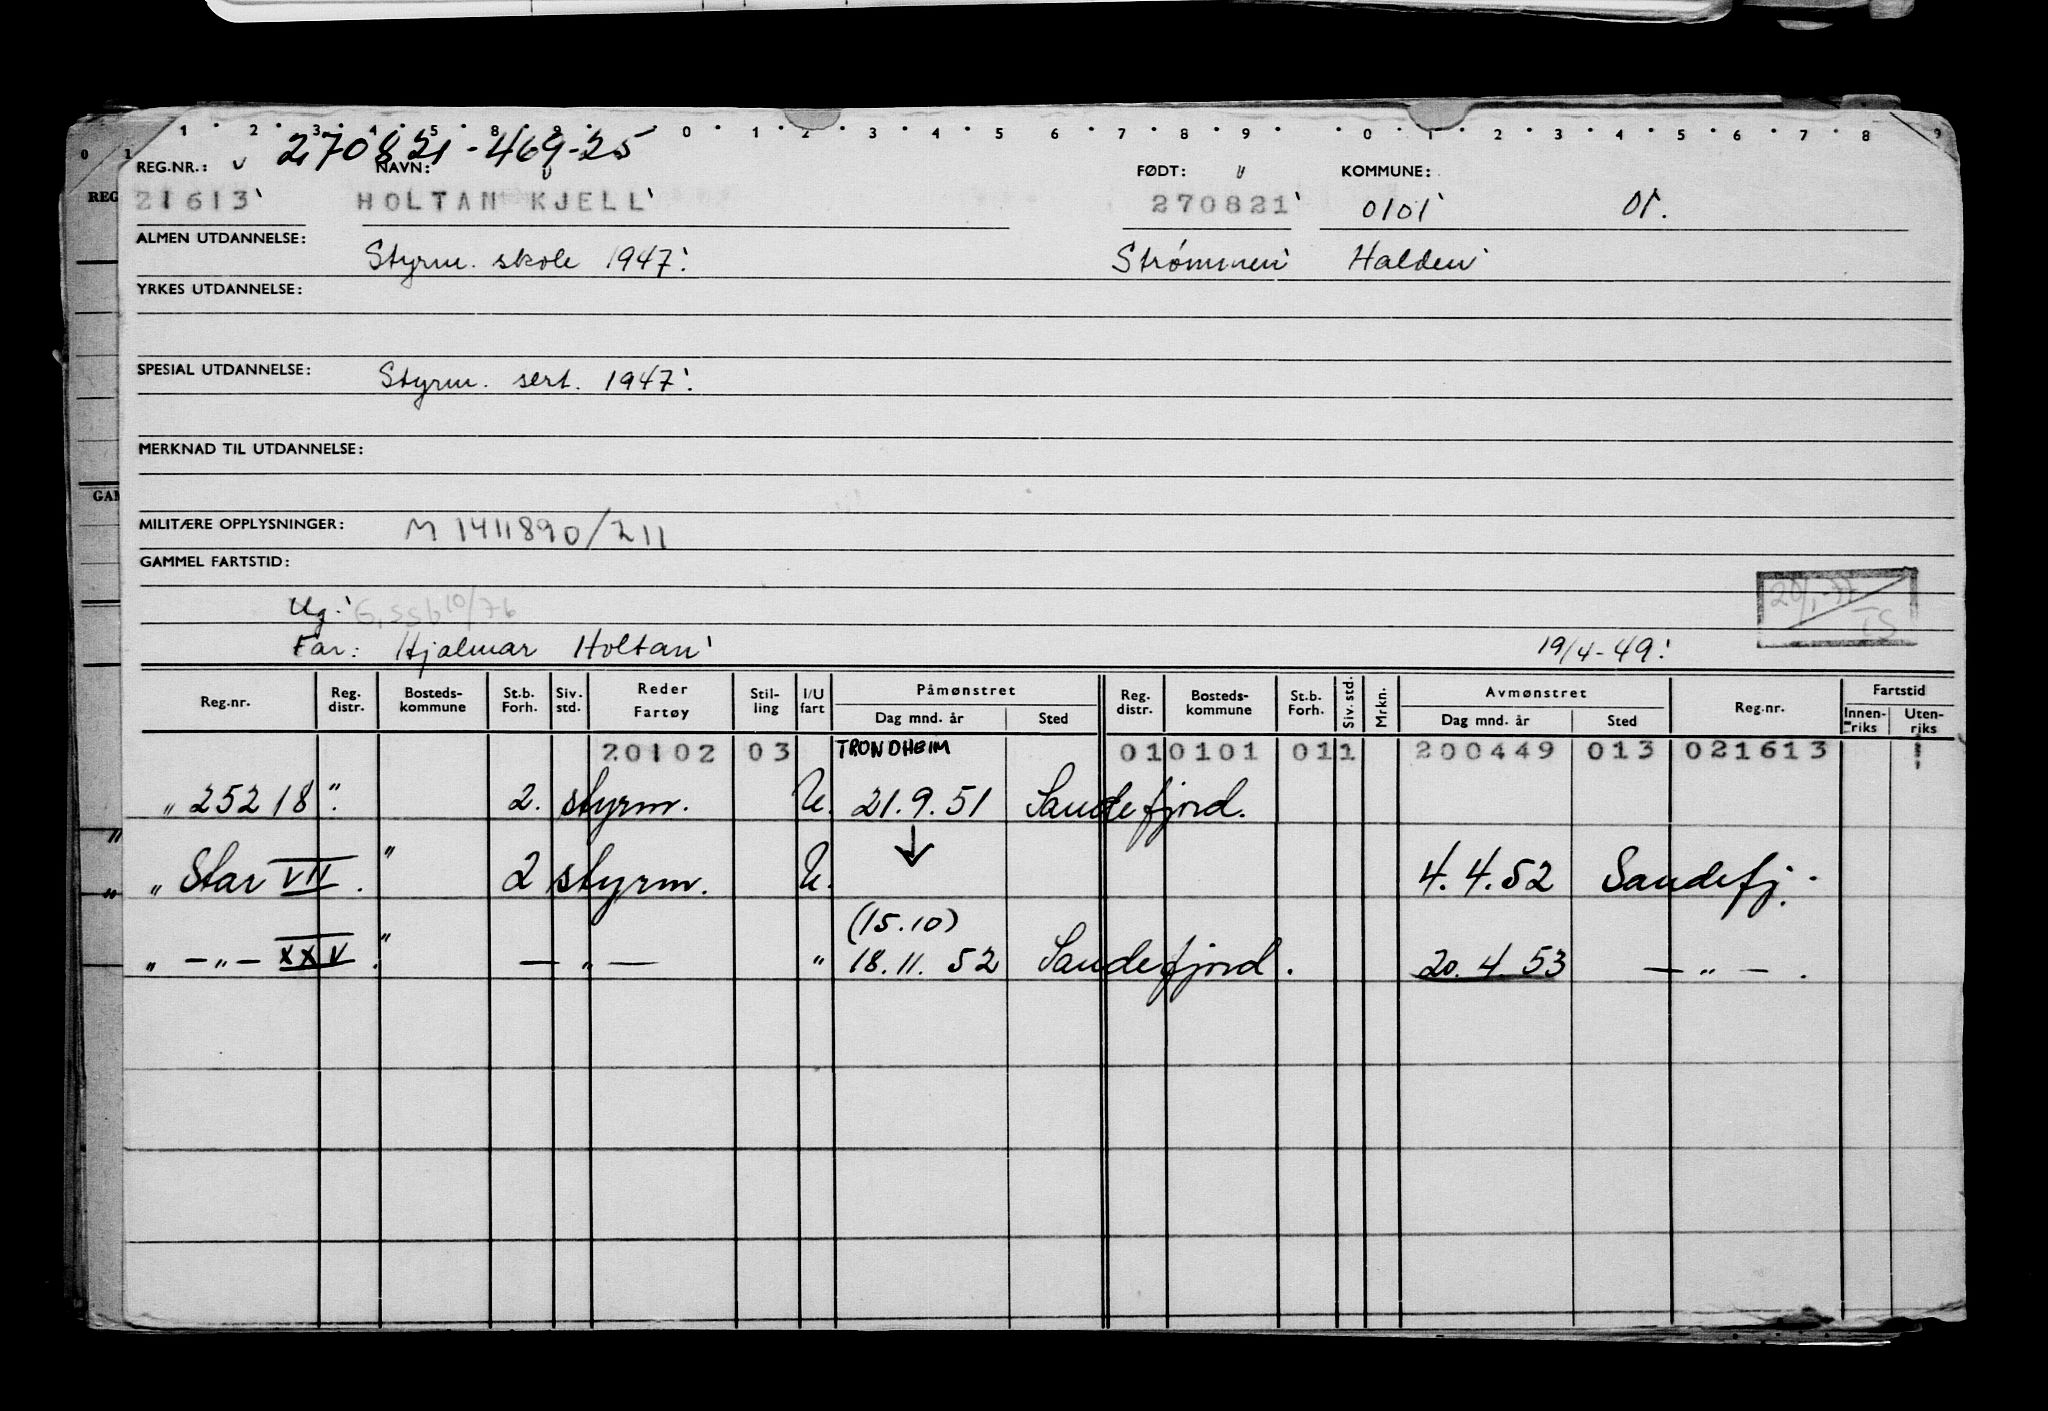 1 2 3 4 5 8 9 0 1 2 3 4 5 6 7 8 9 0 1 2 3 4 5 6 7 8 9
0 1
270821-469-25
REG.NR.: NAVN: FØDT: " KOMMUNE:
REG
21613' HOLTAN KJELL' 270821' 0101' 01.
ALMEN UTDANNELSE: Styrm. skole 1947.' Strømmen' Halden'
YRKES UTDANNELSE:
SPESIAL UTDANNELSE: Styrm. sert. 1947.'
MERKNAD TIL UTDANNELSE:
GAM
MILITÆRE OPPLYSNINGER: M 1411890/211
GAMMEL FARTSTID:
Ug.'
Far: Hjalmar Holtan' 19/4-49.'
Reg.nr. Reg. distr. Bosteds-kommune St.b. Forh. Siv. std. Reder Fartøy Stil-ling I/U fart Påmønstret Dag mnd. år Sted Reg. distr. Bosteds-kommune St.b. Forh. Siv. std. Mrkn. Avmønstret Dag mnd. år Sted Reg.nr. Fartstid Innen-riks Uten-riks
20102 03 TRONDHEIM 01 0101 011 200449 013 021613
" 25218 ". 2. styrm. U. 21.9.51 Sandefjord.
" Star VII ". 2 styrm. U. ↓ 4.4.52 Sandefj.
(15.10)
" — " — XXV ". — " — " 18.11.52 Sandefjord. 20.4.53 — " — .